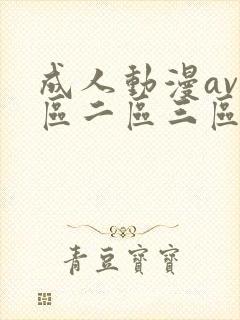 成人動漫av
區二區三區
青豆寶寶